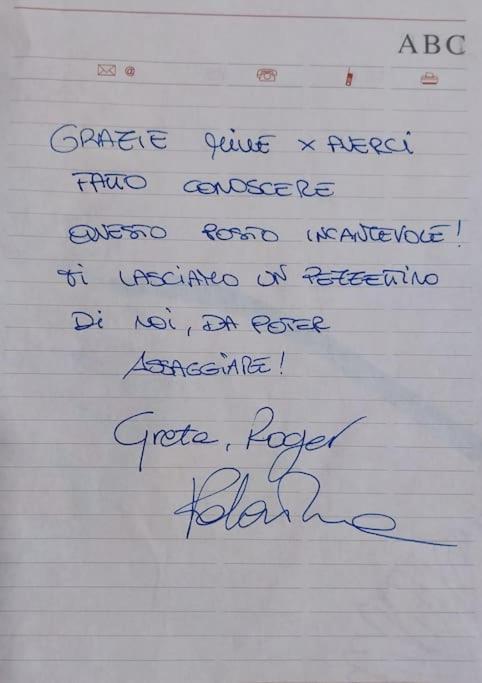 ABC
@
GRAZIE MILLE X AVERCI
FATTO CONOSCERE
QUESTO POSTO INCANTEVOLE!
TI LASCIAMO UN PEZZETTINO
DI NOI, DA POTER
ASSAGGIARE!
Greta, Roger